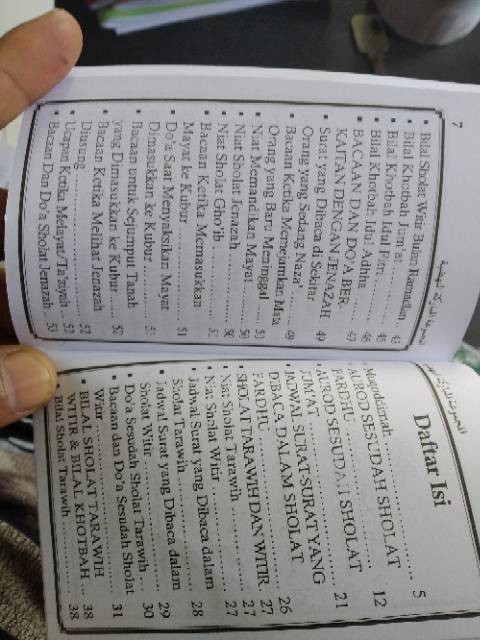 Daftar Isi
Muqoddimah 5
AUROD SESUDAH SHOLAT
FARDHU 12
AUROD SESUDAH SHOLAT
JUM'AT 21
JADWAL SURAT-SURAT YANG
DIBACA DALAM SHOLAT
FARDHU 26
SHOLAT TARAWIH DAN WITIR. 27
Niat Sholat Tarawih 27
Niat Sholat Witir 27
Jadwal Surat yang Dibaca dalam
Sholat Tarawih 28
Jadwal Surat yang Dibaca dalam
Sholat Witir 29
Do'a Sesudah Sholat Tarawih 30
Bacaan dan Do'a Sesudah Sholat
Witir 31
BILAL SHOLAT TARAWIH
WITIR & BILAL KHOTBAH 38
Bilal Sholat Tarawih 38
7
Bilal Sholat Witir Bulan Ramadlan 43
Bilal Khotbah Jum'at
Bilal Khotbah Idul Fitri 45
Bilal Khotbah Idul Adhha 46
BACAAN DAN DO'A BER-
KAITAN DENGAN JENAZAH
Surat yang Dibaca di Sekitar
Orang yang Sedang Naza' 49
Bacaan Ketika Memejamkan Mata
Orang yang Baru Meninggal 49
Niat Memandikan Mayat 50
Niat Sholat Jenazah 50
Niat Sholat Gho'ib 50
Bacaan Ketika Memasukkan
Mayat ke Kubur
Do'a Saat Menyaksikan Mayat
Dimasukkan ke Kubur 51
Bacaan untuk Sejumput Tanah
yang Dimasukkan ke Kubur
Bacaan Ketika Melihat Jenazah
Diusung 52
Ucapan Ketika Melayat/Ta'ziyah 52
Bacaan Dan Do'a Sholat Jenazah 53